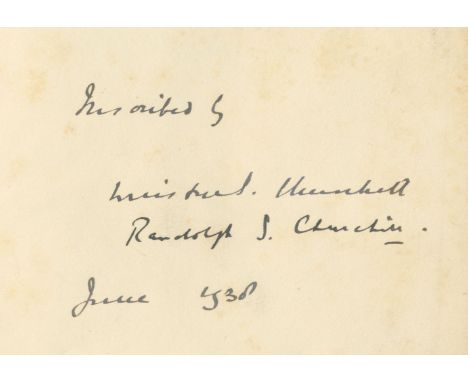 Inscribed by
Winston S. Churchill
Randolph S. Churchill.
June 1938